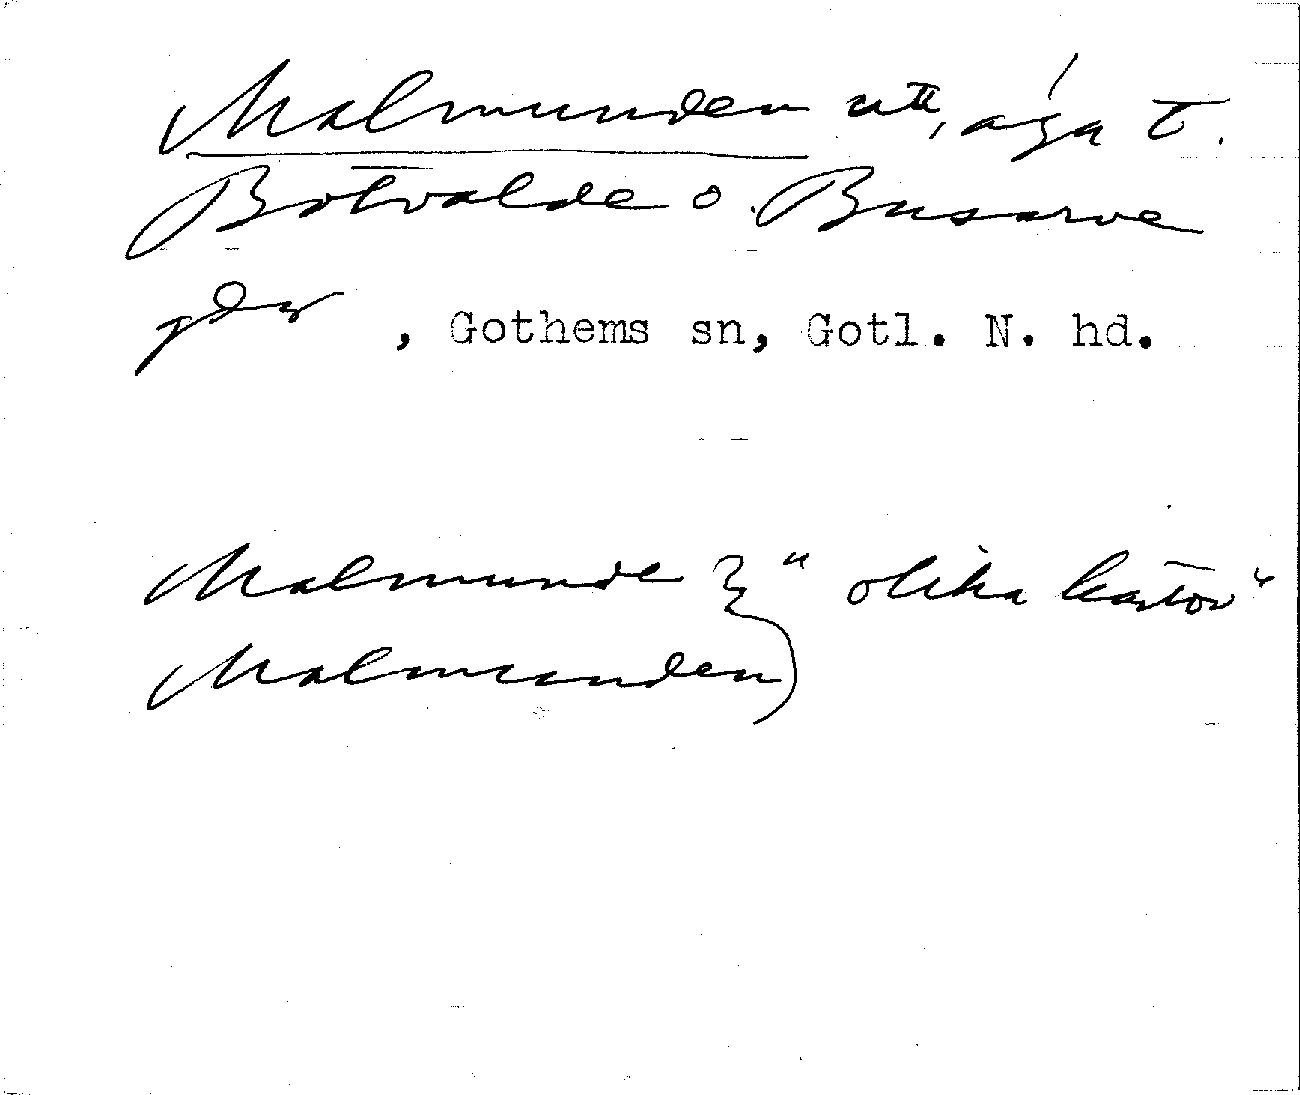 Malmunden utt, äga t.
Botvalde o. Busarve
gdr, Gothems sn, Gotl. N. hd.
Malmunde } "olika kartor"
Malmunden